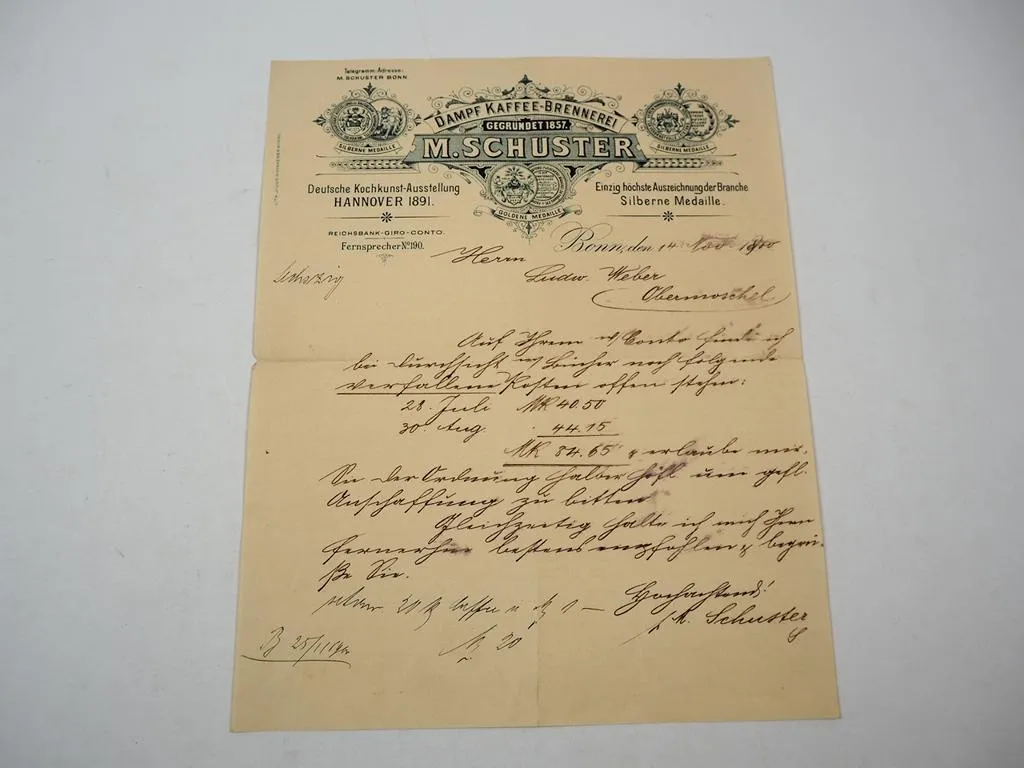 Telegramm-Adresse:
M. SCHUSTER BONN
DAMPF KAFFEE-BRENNEREI
GEGRÜNDET 1857.
M. SCHUSTER
SILBERNE MEDAILLE
SILBERNE MEDAILLE
GOLDENE MEDAILLE
Deutsche Kochkunst-Ausstellung
HANNOVER 1891.
Einzig höchste Auszeichnung der Branche
Silberne Medaille.
REICHSBANK-GIRO-CONTO.
Fernsprecher No 190.
Bonn, den 14 Nov
Herrn
Ludw. Weber
Obermoschel
Auf Ihrem w/ Conto finde ich
bei Durchsicht m/ Bücher noch folgende
verfallene Posten offen stehen:
28. Juli Mk 40.50
30. Aug. 44.15
Mk 84.65 & erlaube mir,
Sie der Ordnung halber höfl. um gefl.
Anschaffung zu bitten
Gleichzeitig halte ich mich Ihnen
fernerhin bestens empfohlen & begrü-
ße Sie.
Hochachtend!
M. Schuster
20
25/11